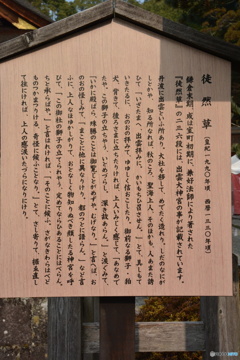 徒然草（皇紀一九九〇年頃　西暦一三三〇年頃）
鎌倉末期、或は室町初期に、兼好法師により著された
『徒然草』の二三六段には、出雲大神宮の事が記載されています。
丹波に出雲といふ所あり。大社を移して、めでたく造れり。しだのなにが
しとかや、しる所なれば、秋のころ、聖海上人、そのほかも、人あまた誘
ひて、「いざたまへ、出雲拝みに。かいもちひ召させん」とて、具しもて
いきたるに、おのおの拝みて、ゆゆしく信おこしたり。御前なる獅子・狛
犬、背きて、後ろさまに立ちたりければ、上人いみじく感じて、「あなめで
たや。この獅子の立ちやう、いとめづらし。深き故あらん」と涙ぐみて、
「いかに殿ばら、殊勝のことは御覧じとがめずや。むげなり」と言へば、お
のおの怪しみて、「まことに他に異なりけり。都のつとに語らん」など言
ふに、上人なほゆかしがりて、おとなしく物知りぬべき顔したる神官をよ
びて、「この御社の獅子の立てられやう、定めてならひあることにはべらん。
ちと承らばや」と言はれければ、「そのことに候ふ。さがなきわらはべど
ものつかまつりける、奇怪に候ふことなり」とて、さし寄りて、据ゑ直し
て往にければ、上人の感涙いたづらになりにけり。